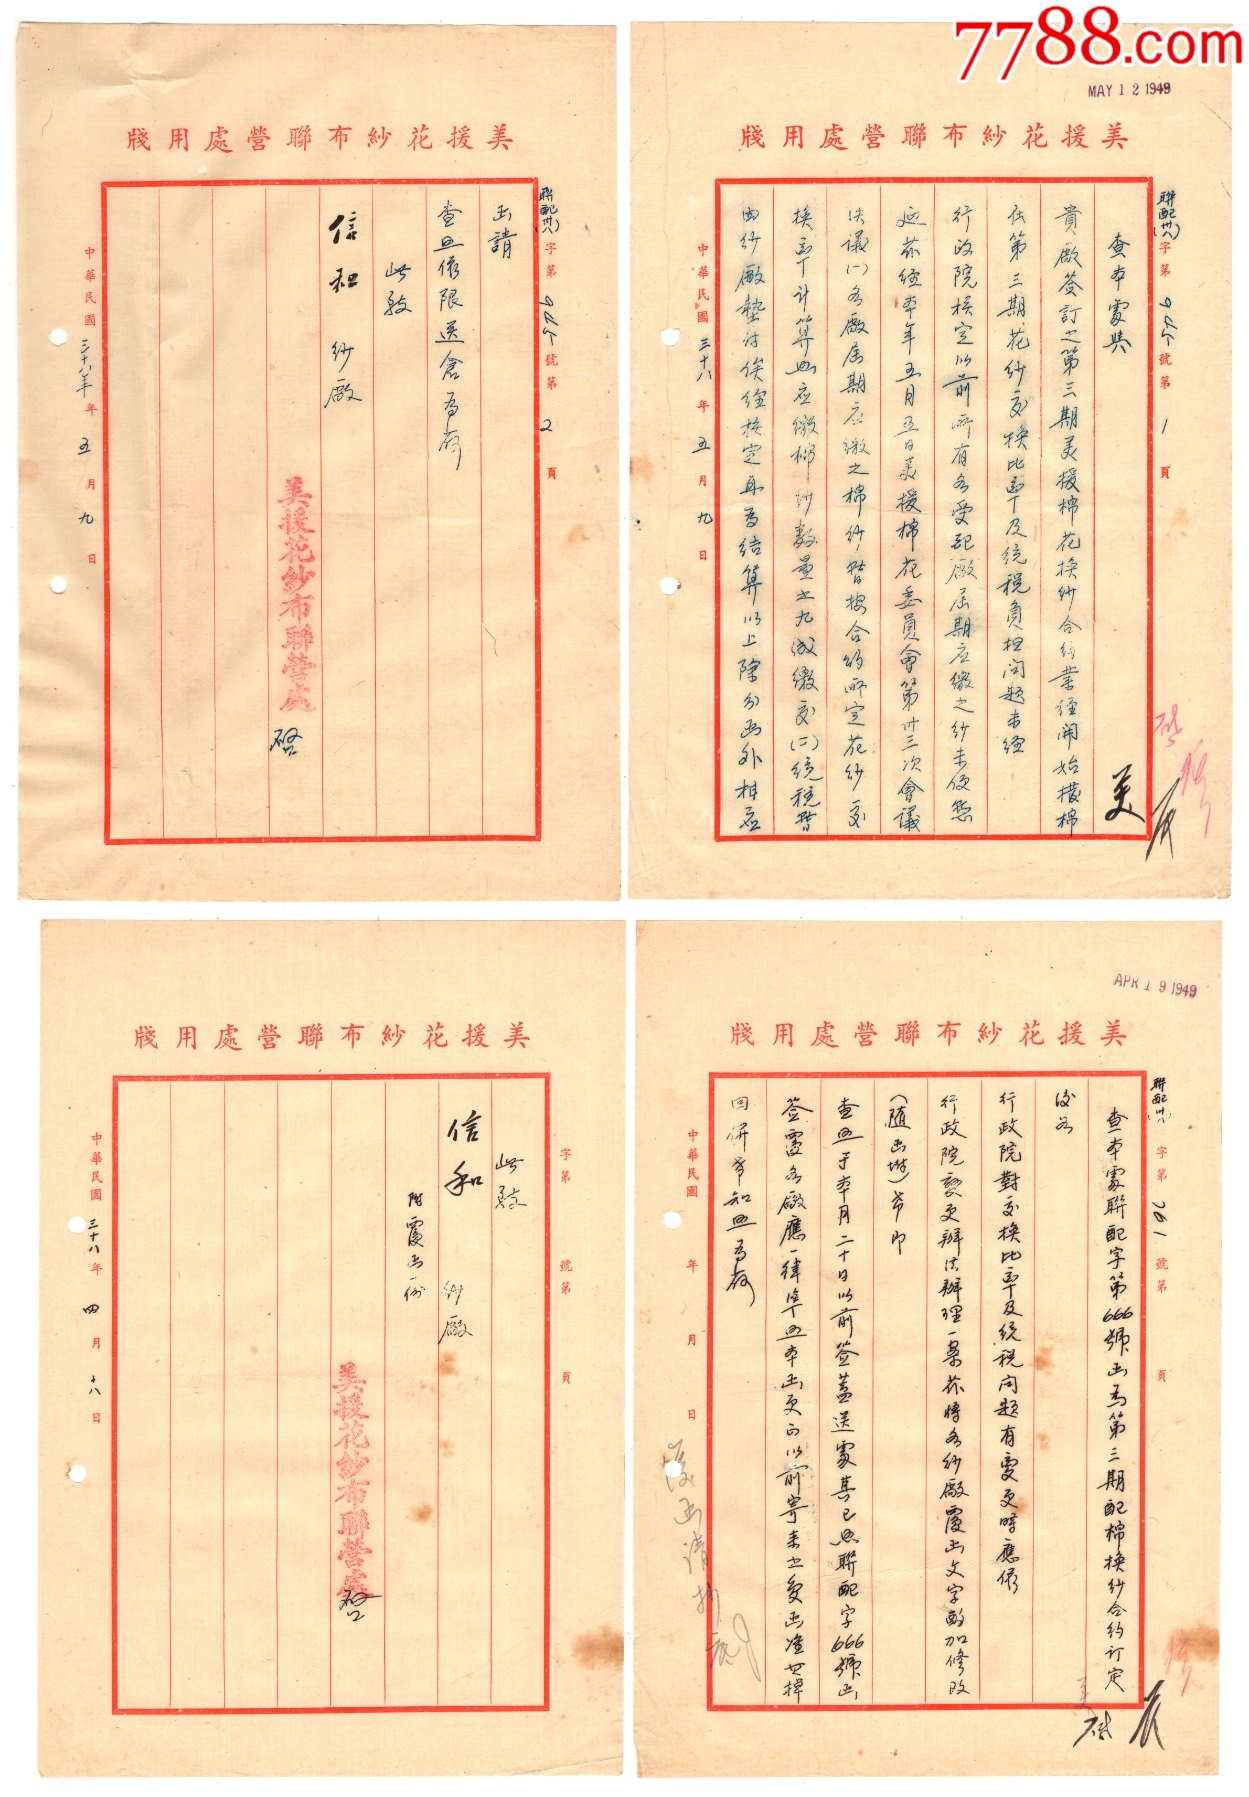 7788.com
MAY 1 2 1949
美援花紗布聯營處用牋
聯配(卅八)字第905號第1頁
查本處與
貴廠簽訂之第三期美援棉花換紗合約業經開始撥棉
在第三期花紗交換比率及統稅負担問題未經
行政院核定以前所有各受配廠屆期应繳之紗未便懸
延茲經本年五月五日美援棉花委員會第卅三次會議
決議(一)各廠屆期应繳之棉紗暫按合約所定花紗交
換率計算照应繳棉紗數量之九成繳交(二)統稅暫
由紗廠墊付俟經核定再為結算以上除分函外相应
中華民國三十八年五月九日
美援花紗布聯營處用牋
聯配(卅八)字第905號第2頁
函請
查照依限送倉為荷
此致
信和紗廠
美援花紗布聯營處
啓
中華民國三十八年年五月九日
APR 1 9 1949
美援花紗布聯營處用牋
聯配卅八字第761號第頁
查本處聯配字第666號函為第三期配棉換紗合約訂定
後如
行政院對交換比率及統稅問題有變更時應依
行政院變更辦法辦理一案茲將各紗廠覆函文字酌加修改
(隨函坿)希即
查照于本月二十日以前簽蓋送處其已照聯配字666號函
簽覆各廠應一律準照本函更正以前寄來之覆函准世擇
回併希知照為荷
中華民國年月日
美援花紗布聯營處用牋
字第號第頁
此致
信和紗廠
附覆函一份
美援花紗布聯營處
啓
中華民國三十八年四月十八日